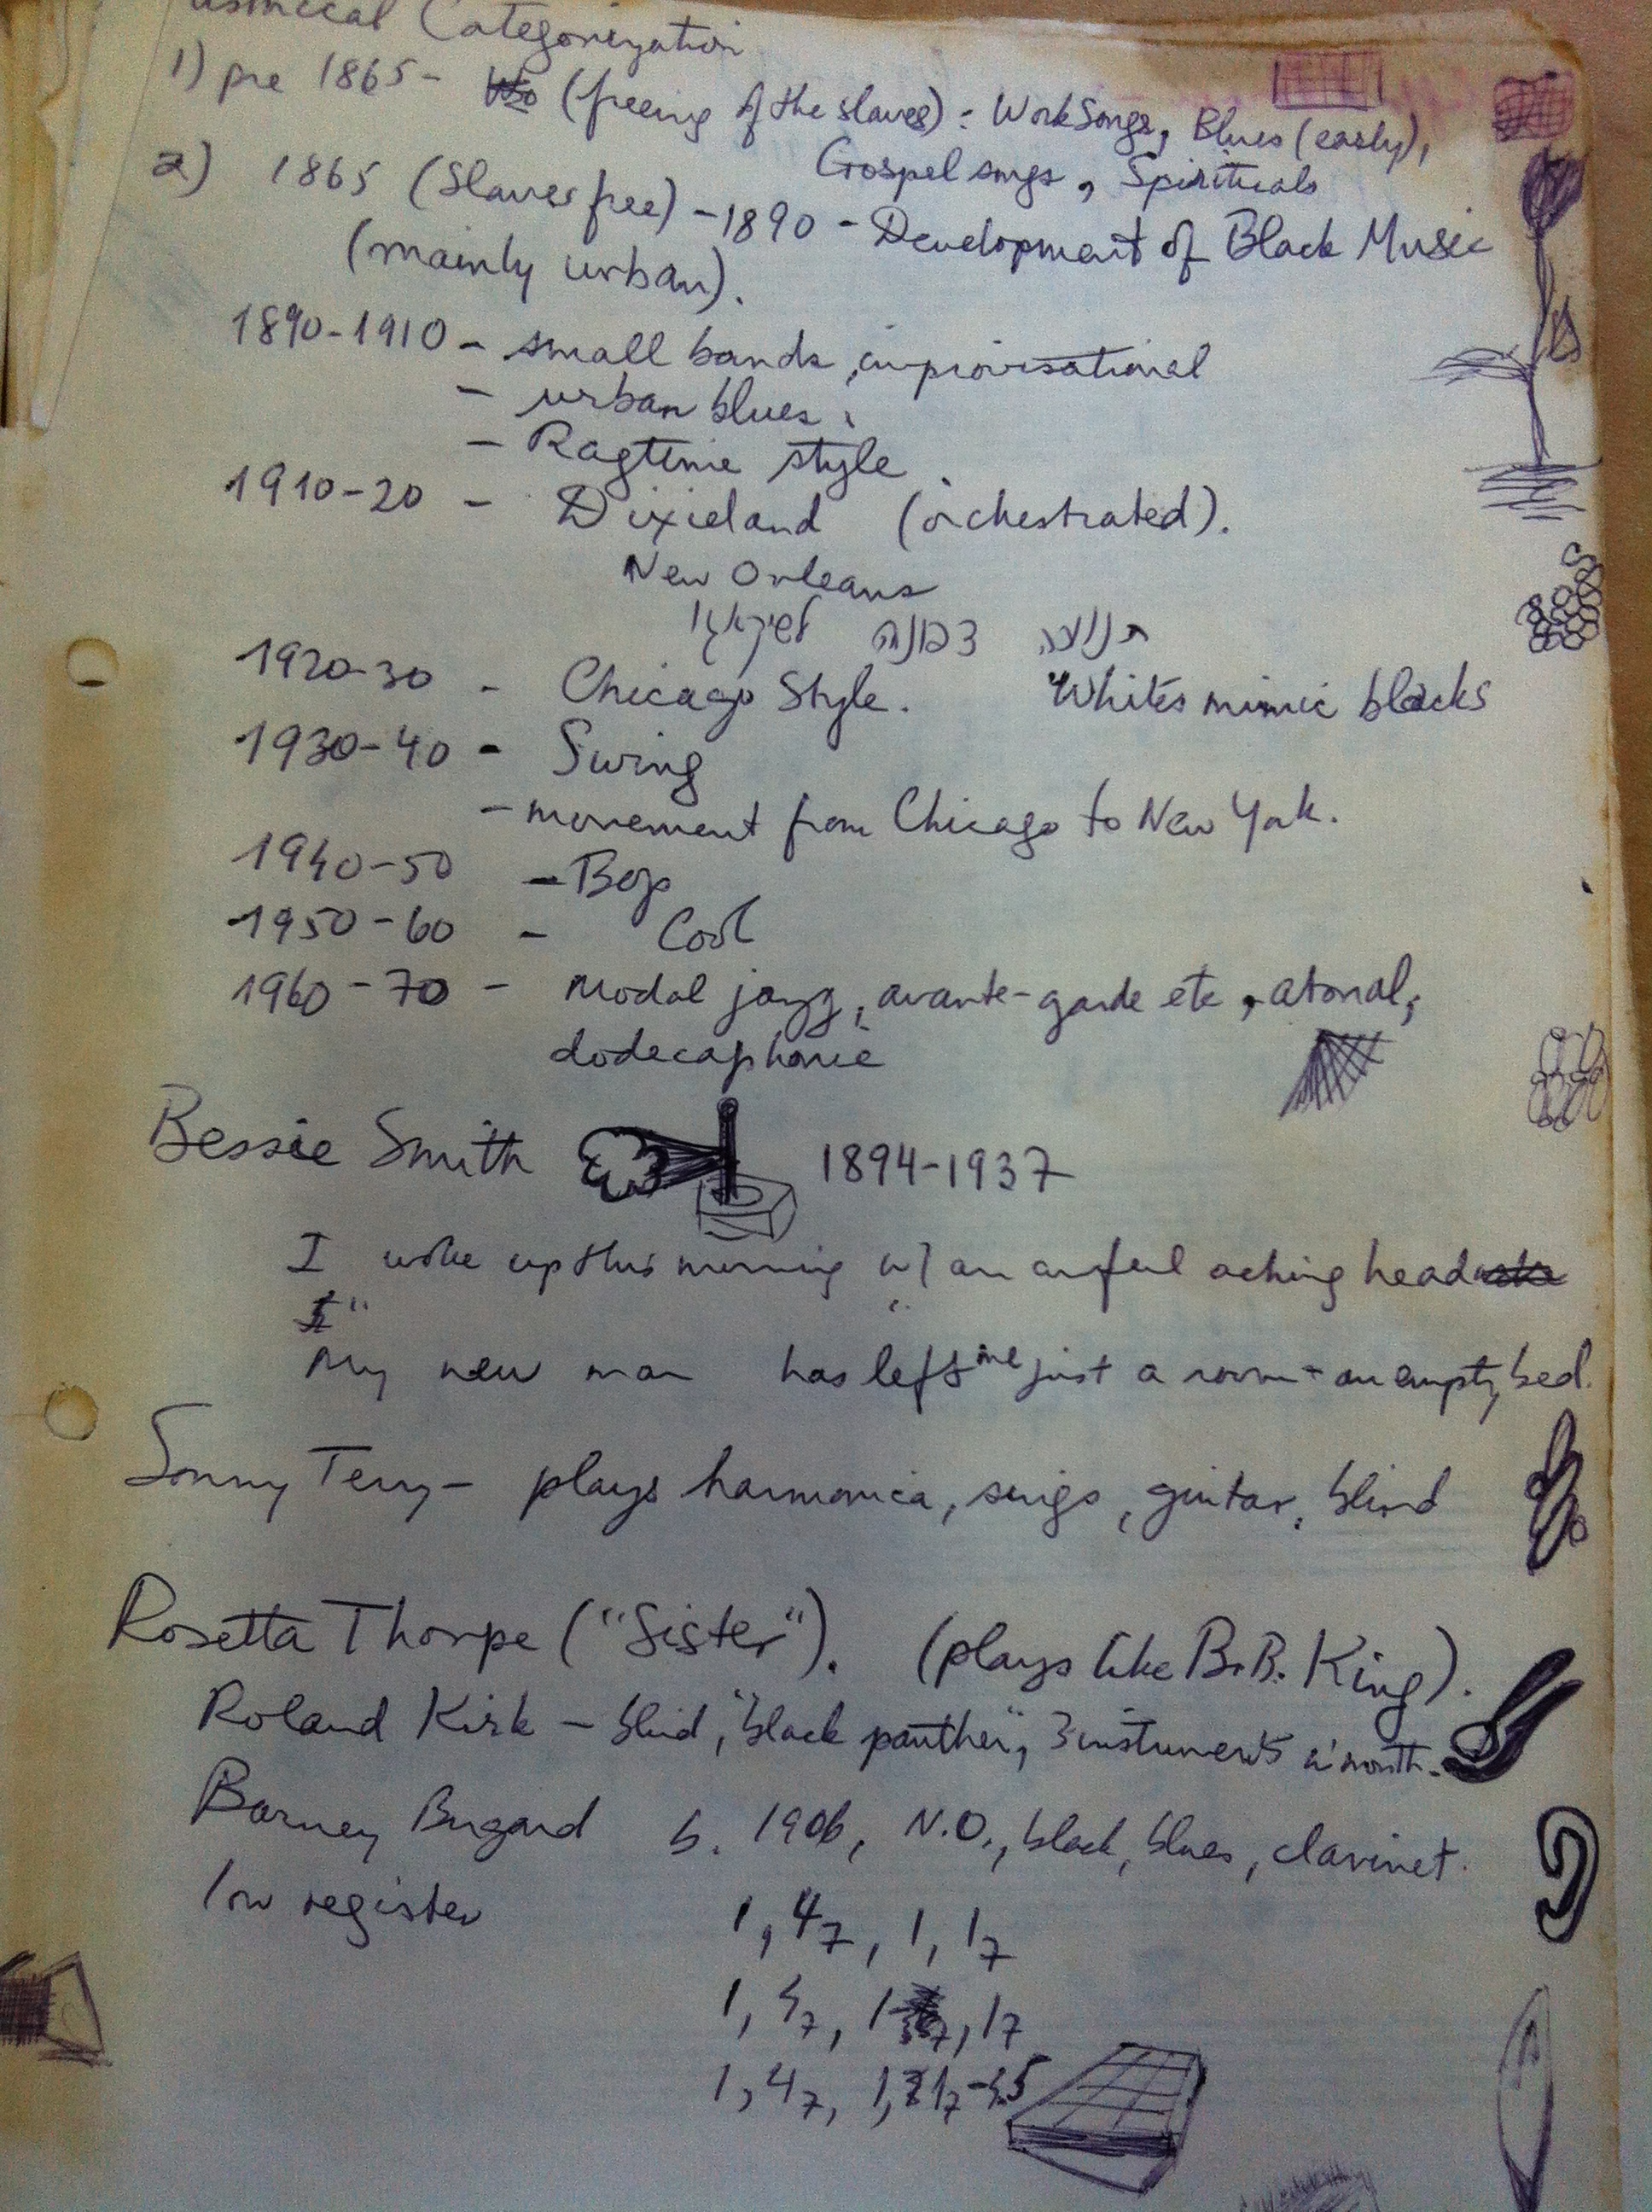 Categorization
1) pre 1865 - (freeing of the slaves): Work Songs, Blues (early),
Gospel songs, Spirituals
2) 1865 (Slaves free) - 1890 - Development of Black Music
(mainly urban).
1890-1910 - small bands, improvisational
- urban blues.
- Ragtime style.
1910-20 - Dixieland (orchestrated).
New Orleans
תנועה צפונה לשיקגו
1920-30 - Chicago Style. Whites mimic blacks
1930-40 - Swing
- movement from Chicago to New York.
1940-50 - Bop
1950-60 - Cool
1960-70 - Modal jazz, avante-garde etc, atonal,
dodecaphonic
Bessie Smith 1894-1937
I woke up this morning w/ an awful aching head
" "
My new man has left me just a room + an empty bed.
Sonny Terry - plays harmonica, sings, guitar, blind
Rosetta Thorpe ("Sister"). (plays like B.B. King).
Roland Kirk - blind, "black panther", 3 instuments in mouth.
Barney Bugard b. 1906, N.O., black, blues, clarinet.
low register
1, 4₇, 1, 1₇
1, 4₇, 1, 1₇
1, 4₇,